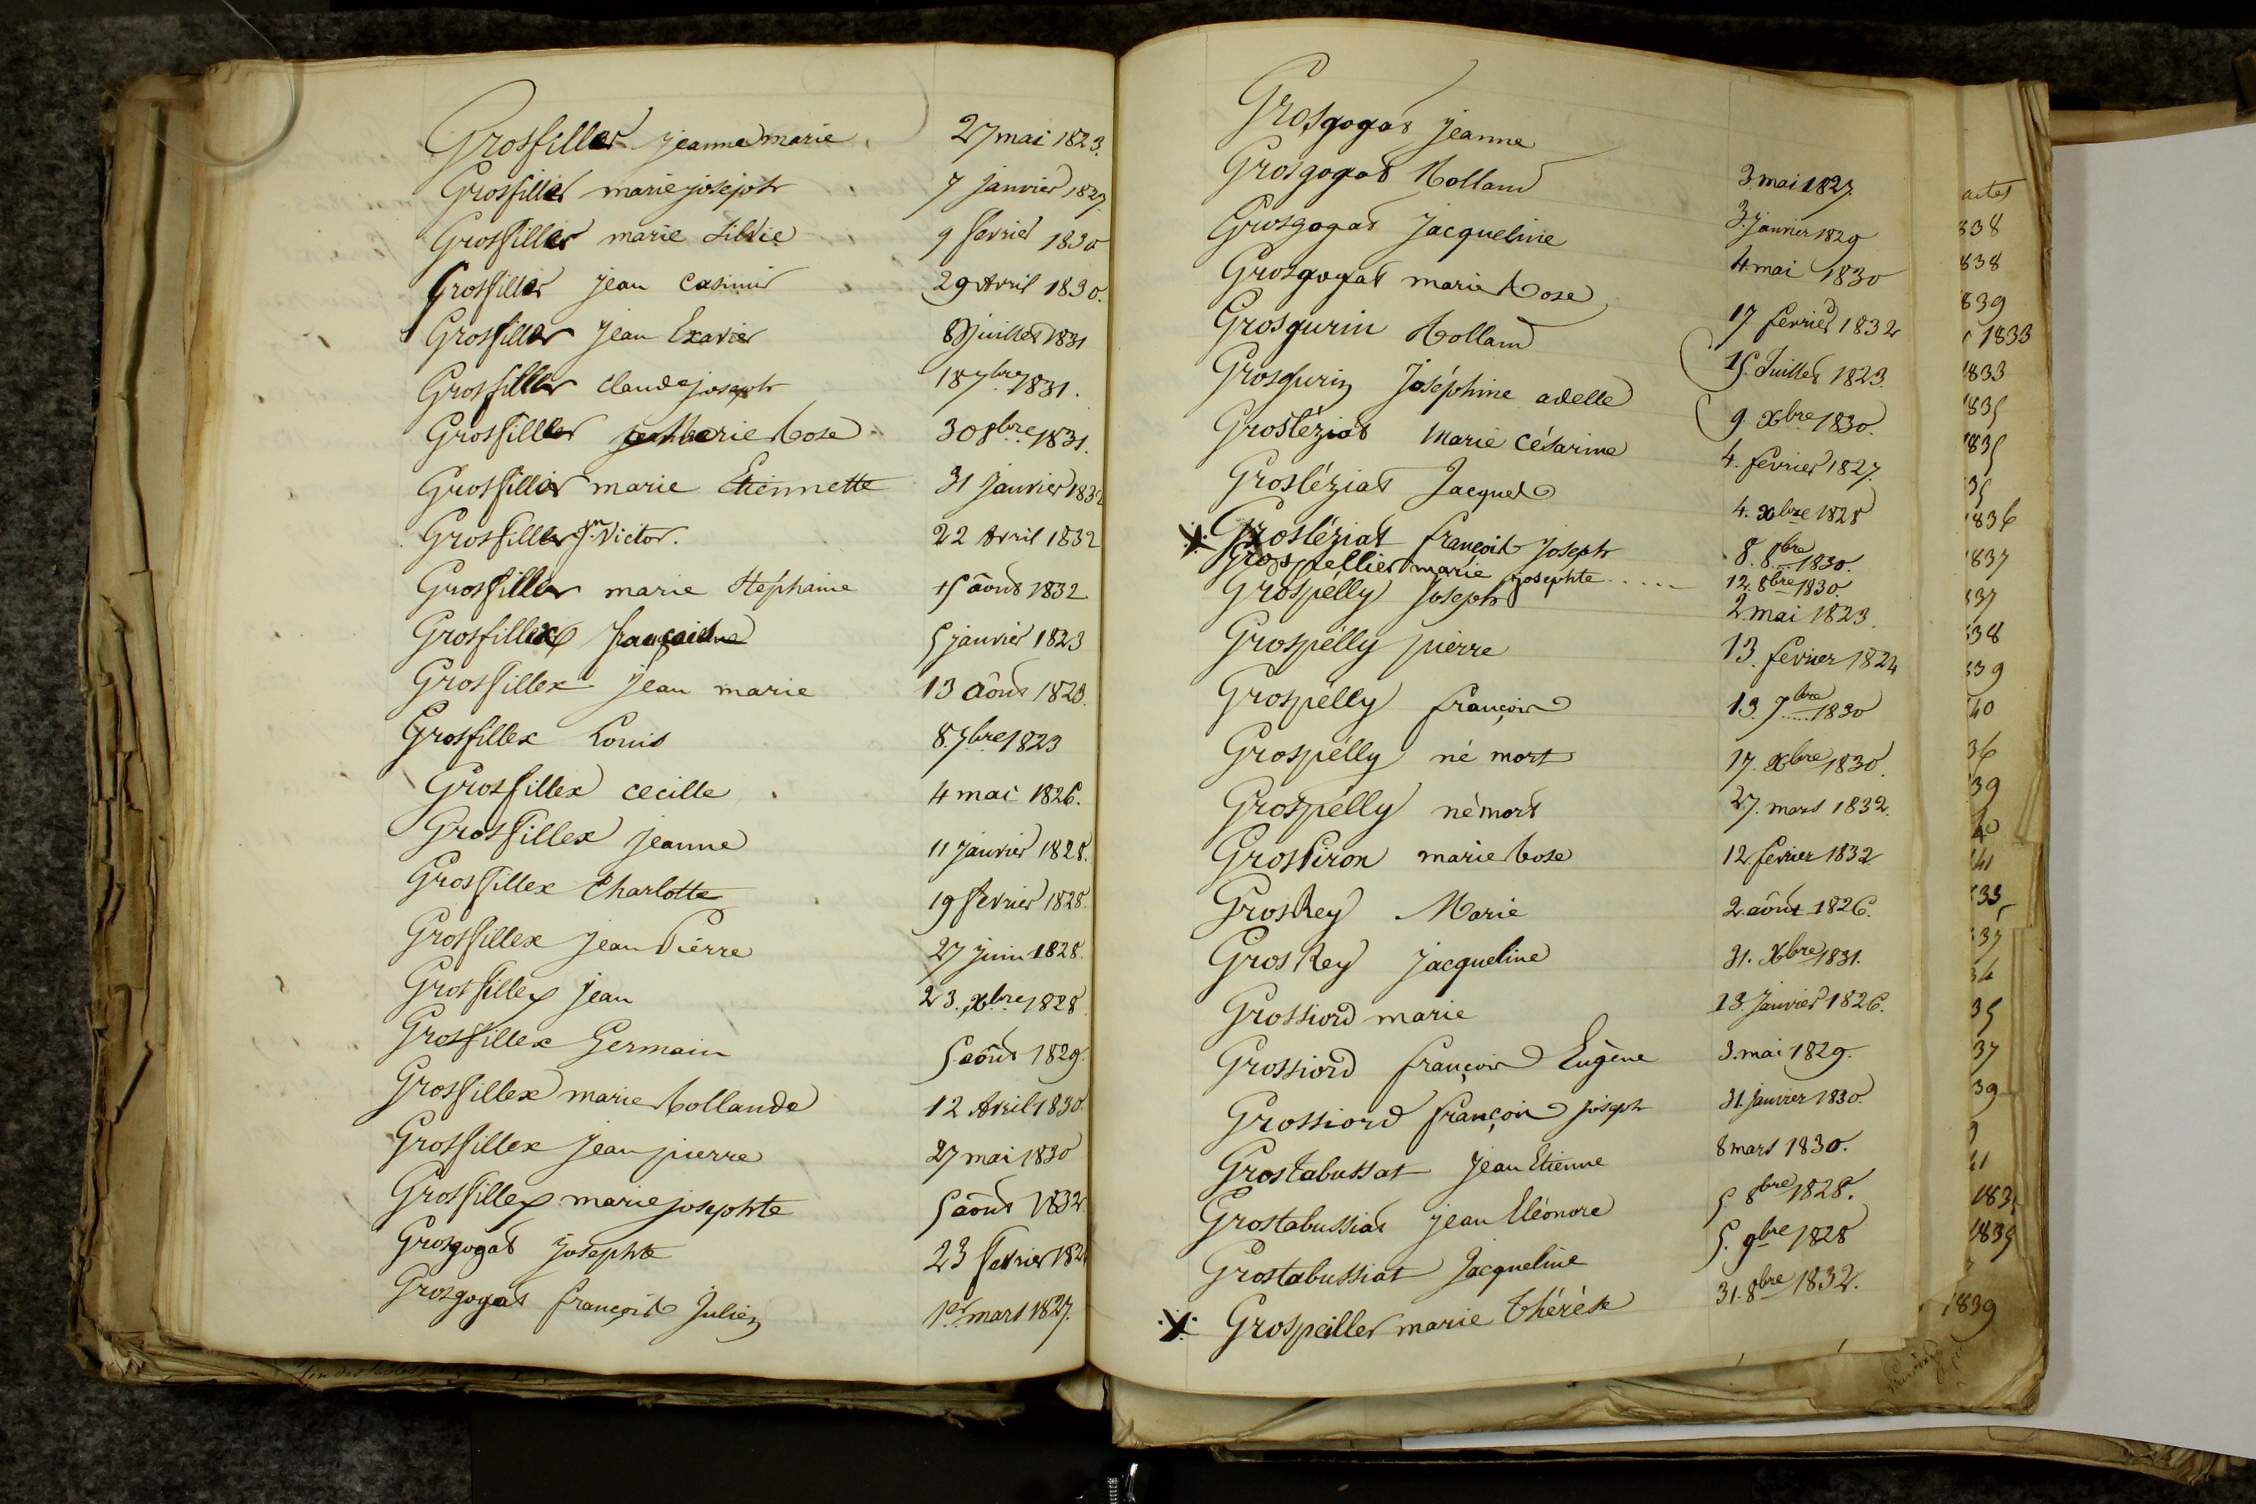 Grosfiller jeanne marie 27 mai 1823.
Grosfiller marie joseph 7 janvier 1827.
Grosfiller marie Silvie 9 fevrier 1830
Grosfiller jean casimir 29 Avril 1830.
Grosfiller jean Exavier 8 juillet 1831
Grosfiller claude joseph 18 7bre 1831.
Grosfiller marie Rose 30 8bre 1831.
Grosfiller marie Etiennette 31 janvier 1832
Grosfiller jn. Victor. 22 Avril 1832
Grosfiller marie Stéphanie 15 août 1832
Grosfillex françoise 5 janvier 1823
Grosfillex jean marie 13 août 1823.
Grosfillex Louis 8. 7bre 1823
Grosfillex cecille 4 mai 1826.
Grosfillex jeanne 11 janvier 1828.
Grosfillex Charlotte 19 fevrier 1828.
Grosfillex jean Pierre 27 juin 1828.
Grosfillex jean 23. xbre 1828
Grosfillex Germain 5 août 1829.
Grosfillex marie Rollande 12 Avril 1830.
Grosfillex jean pierre 27 mai 1830
Grosfillex marie josephte 5 août 1832
Grosgogat josephte 23 fevrier 182
Grosgogat françois Julien 1er mars 1827.
Grosgogat jeanne 3 mai 1827.
Grosgogat Rolland 3. janvier 1829
Grosgogat jacqueline 4 mai 1830
Grosgogat marie Rose 17 fevrier 1832
Grosgurin Rolland 15. Juillet 1823.
Grosgurin Joséphine adelle 9. xbre 1830.
Grosléziat Marie Césarine 4. fevrier 1827.
Grosléziat Jacques 4. xbre 1828
Grosléziat françois joseph 8. 8bre 1830.
Grospellier marie josephte 12. 8bre 1830.
Grospélly Joseph 2 mai 1823.
Grospélly pierre 13. fevrier 1824
Grospélly françois 13. 7bre 1830
Grospélly né mort 17. xbre 1830.
Grospélly né mort 27. mars 1832.
Grospiron marie Rose 12 fevrier 1832
GrosRey Marie 2. août 1826.
GrosRey jacqueline 31. Xbre 1831.
Grossiord marie 13. janvier 1826.
Grossiord françois Eugène 3. mai 1829.
Grossiord françois joseph 31. janvier 1830.
Grostabussat jean Etienne 8 mars 1830.
Grostabussiat jean Eléonore 5. 8bre 1828.
Grostabussiat Jacqueline 5. 9bre 1828
Grospeiller marie thérèse 31. 8bre 1832.
actes
838
838
839
1833
1833
1835
1835
35
1836
1837
837
838
839
40
36
39
40
41
33
37
34
35
37
39
41
183
1835
1839